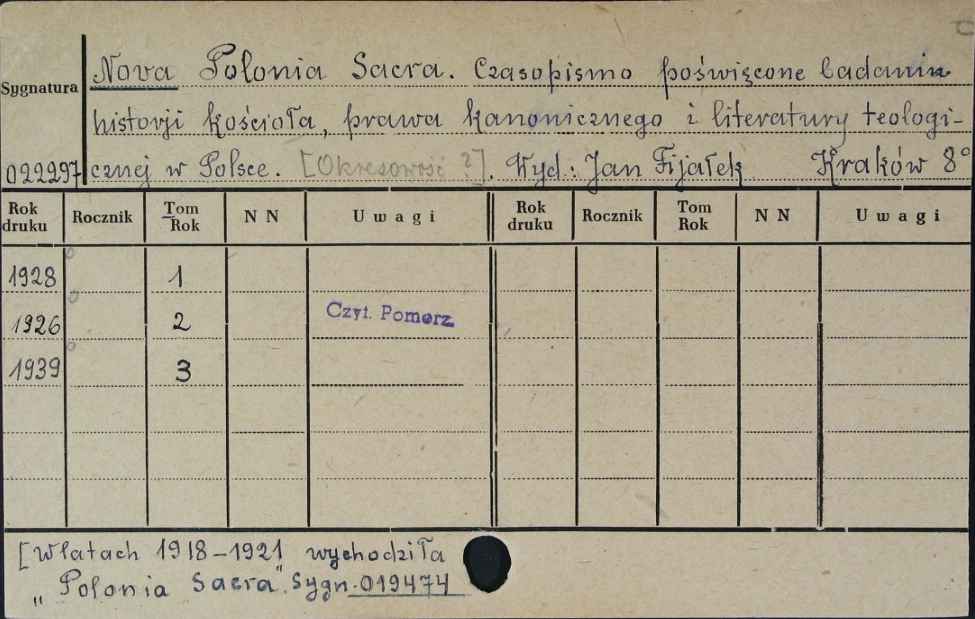 Nova Polonia Sacra. Czasopismo poświęcone badaniu
Sygnatura
historji kościoła, prawa kanonicznego i literatury teologi-
022297 cznej w Polsce. [Okresowość ?]. Wyd.: Jan Fijałek Kraków 8°
Rok druku Rocznik Tom Rok N N Uwagi Rok druku Rocznik Tom Rok N N Uwagi
1928 1
1926 2 Czyt. Pomorz.
1939 3
[W latach 1918-1921 wychodziła
„Polonia Sacra". Sygn. 019474